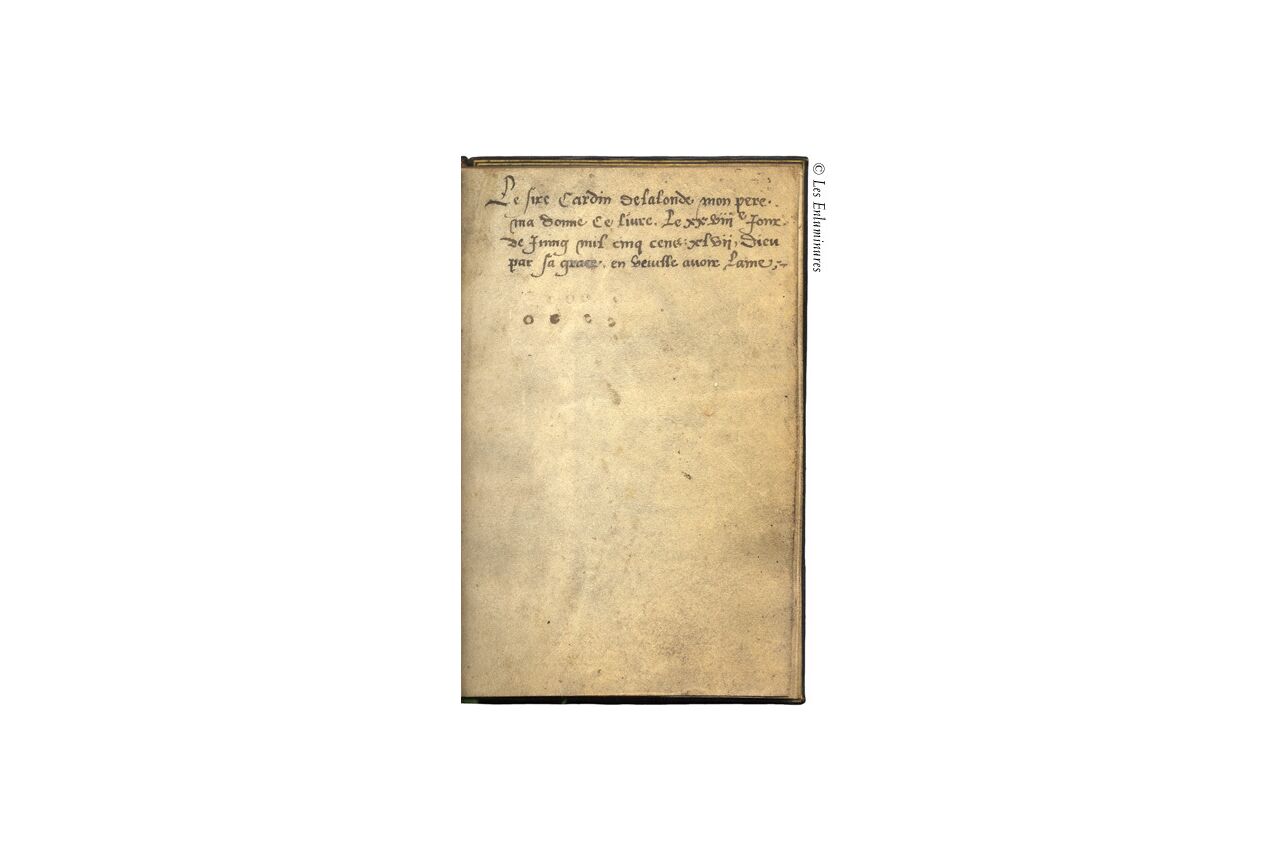 Le sire Cardin delalonde mon pere.
ma donne Ce livre. Le xxviii e Jour.
de Juing mil cinq cens: xlvii, Dieu
par sa grace. en veuille avoir Lame
© Les Enluminures